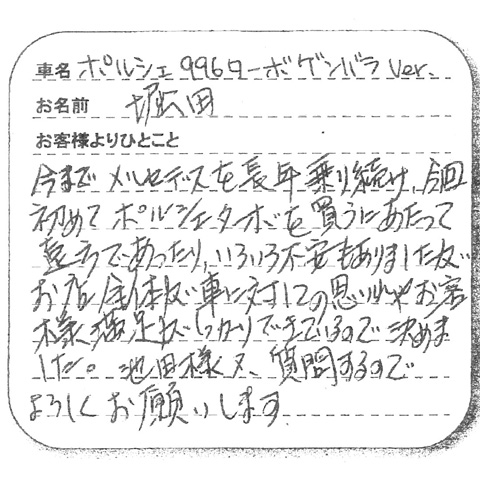 車名 ポルシェ996ターボゲンバラVer.
お名前 堀田
お客様よりひとこと
今までメルセデスを長年乗り続け、今回
初めてポルシェターボを買うにあたって
であったり、いろいろ不安もありましたが
お店全体が車に対しての思い入れやお客
様満足がしっかりできているので決めま
した。池田様又、質問するので
よろしくお願いします